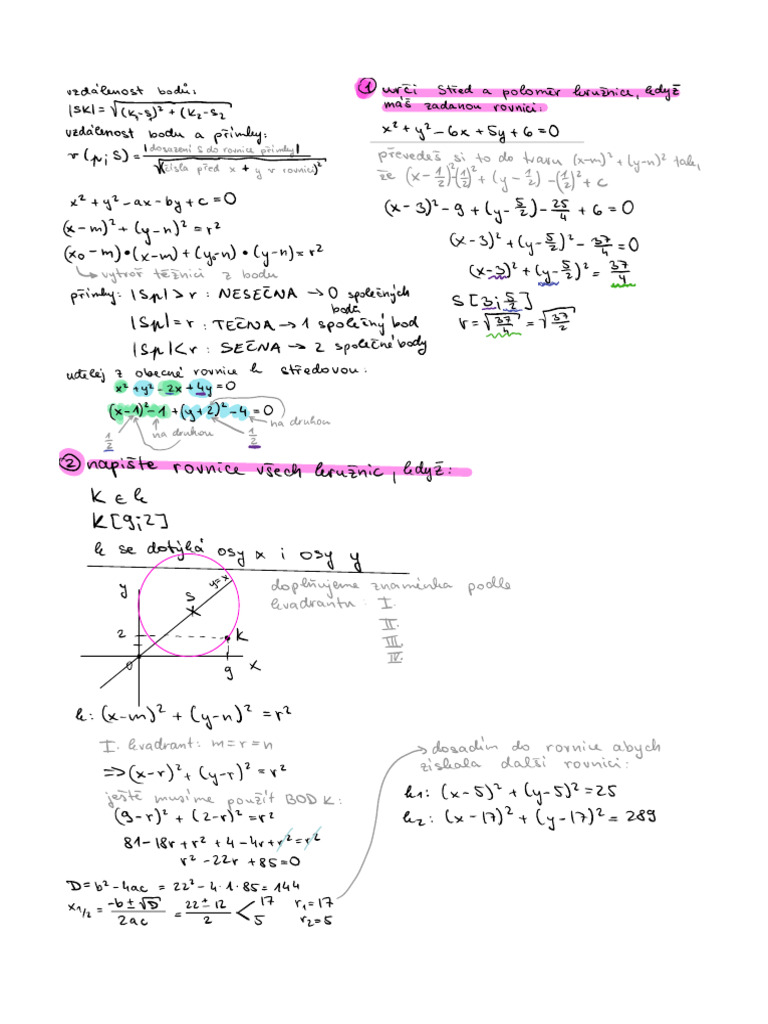 vzdálenost bodů:
|SK| = √(k₁-s₁)² + (k₂-s₂
vzdálenost bodu a přímky:
r(p;S) = |dosazení S do rovnice přímky| / √(čísla před x + y v rovnici)²
x² + y² - ax - by + c = 0
(x-m)² + (y-n)² = r²
(x₀-m)•(x-m) + (y₀-n)•(y-n) = r²
↳ vytvoř těžnici z bodu
přímky: |Sp| > r : NESEČNA → 0 společných bodů
|Sp| = r : TEČNA → 1 společný bod
|Sp| < r : SEČNA → 2 společné body
udělej z obecné rovnice k středovou:
x² + y² - 2x + 4y = 0
(x-1)² - 1 + (y+2)² - 4 = 0
1/2 na druhou 1/2 na druhou
① urči střed a poloměr kružnice, když
máš zadanou rovnici:
x² + y² - 6x + 5y + 6 = 0
převedeš si to do tvaru (x-m)² + (y-n)² tak,
že (x - 1/2)² - (1/2)² + (y - 1/2) - (1/2)² + c
(x-3)² - 9 + (y - 5/2) - 25/4 + 6 = 0
(x-3)² + (y - 5/2)² - 37/4 = 0
(x-3)² + (y - 5/2)² = 37/4
S[3; 5/2]
r = √37/4 = √37/2
② napište rovnice všech kružnic, když:
K ∈ k
K[9;2]
k se dotýká osy x i osy y
y
y=x
S
2
K
0
9
x
doplňujeme znaménka podle
kvadrantu: I.
II.
III.
IV.
k: (x-m)² + (y-n)² = r²
I. kvadrant: m = r = n
=> (x-r)² + (y-r)² = r²
ještě musíme použít BOD K:
(9-r)² + (2-r)² = r²
81 - 18r + r² + 4 - 4r + r² = r²
r² - 22r + 85 = 0
D = b² - 4ac = 22² - 4·1·85 = 144
x₁/₂ = -b ± √D / 2ac = 22 ± 12 / 2 < 17 r₁ = 17
5 r₂ = 5
→ dosadím do rovnice abych
získala další rovnici:
k₁: (x-5)² + (y-5)² = 25
k₂: (x-17)² + (y-17)² = 289